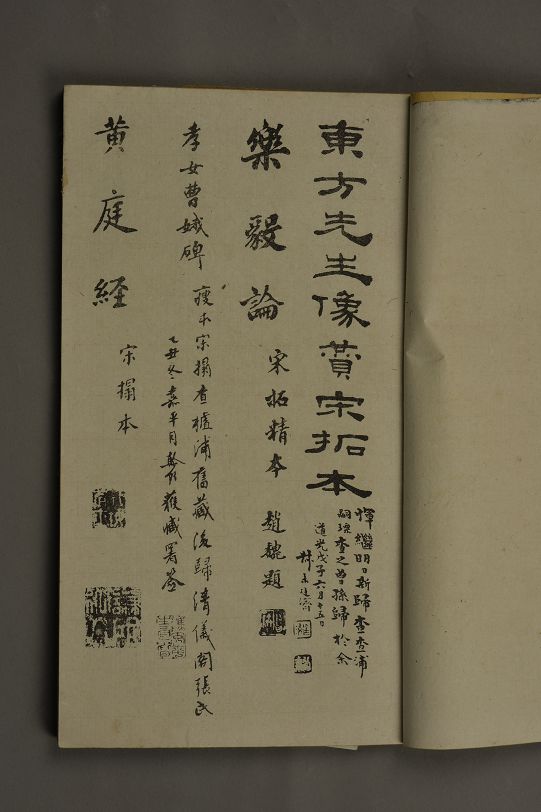 東方先生像贊宋拓本
惲繼明日新歸查查浦
嗣瑮查之曾孫歸於余
道光戊子六月十五日
樂毅論
宋拓精本 趙魏題
孝女曹娥碑
瘦本宋搨查櫨浦舊藏後歸清儀閣張氏
乙丑冬嘉平月 獲臧署簽
黃庭経
宋搨本